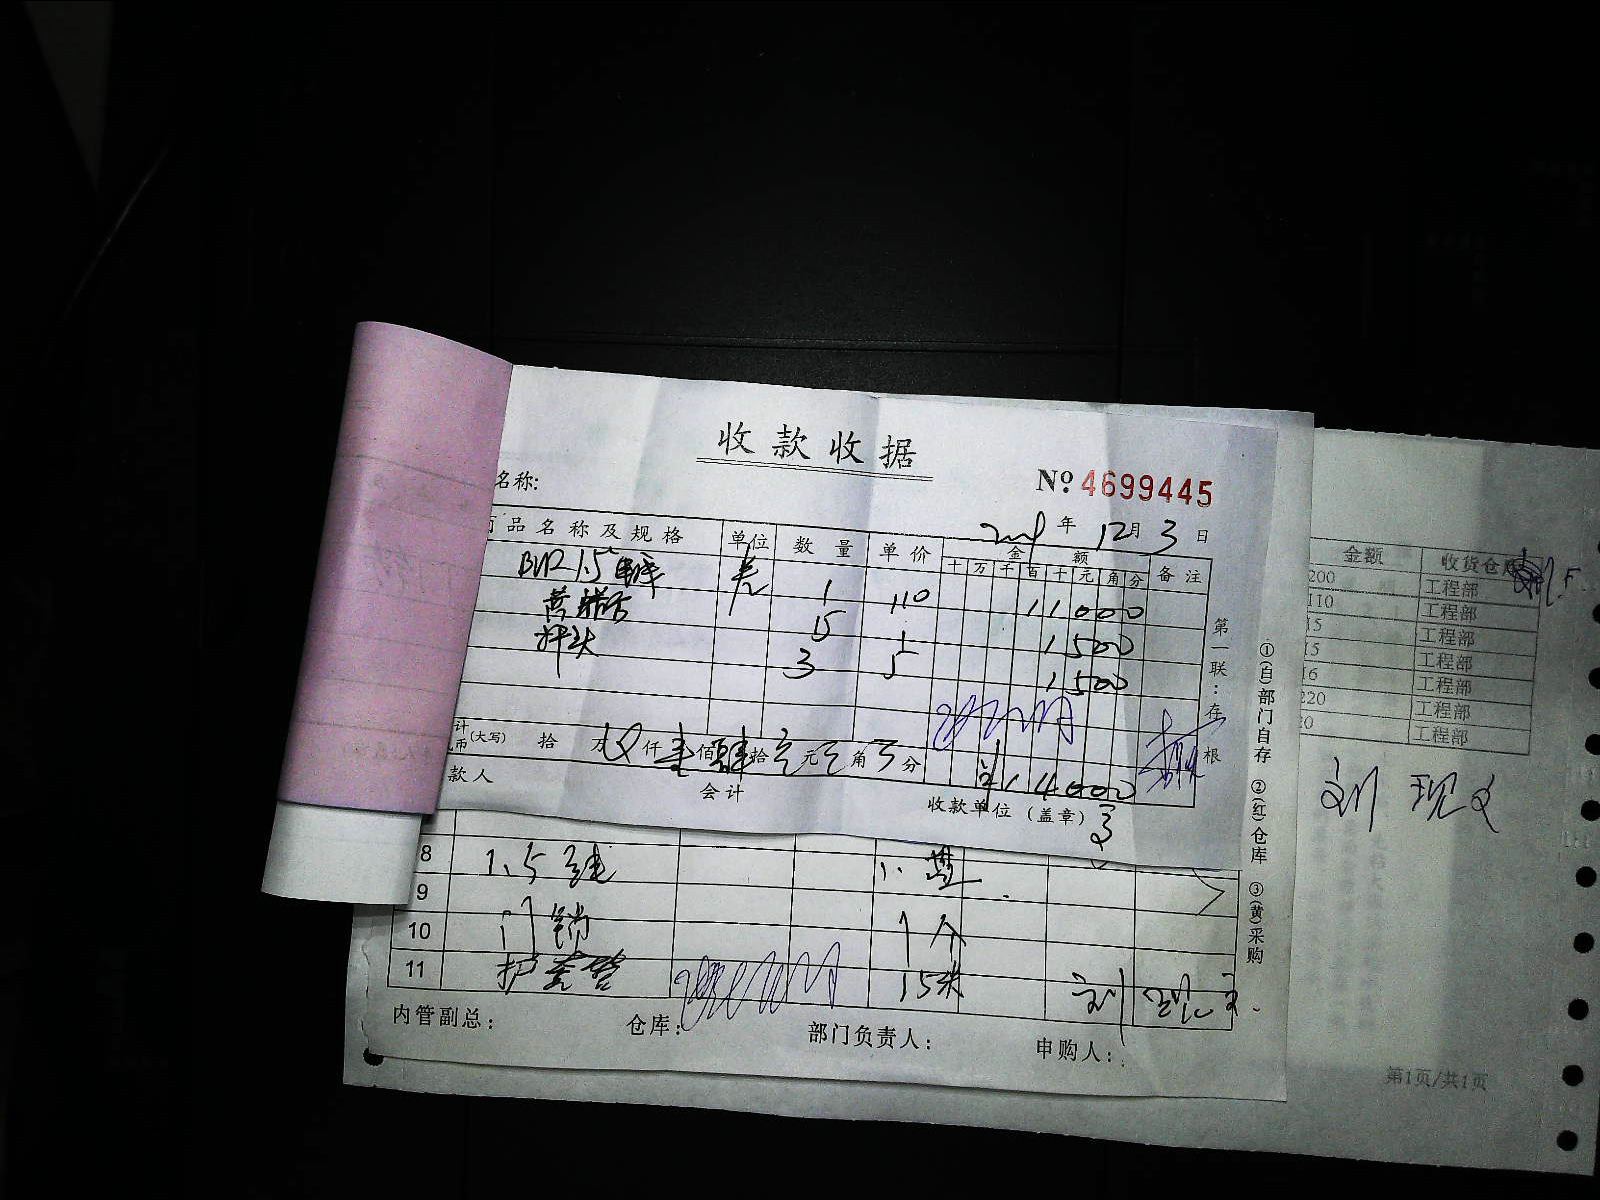 收款收据
名称:
№ 4699445
年 12月 3日
品名称及规格 单位 数量 单价 金额 备注
十 万 千 百 十 元 角 分
BVR 1.5 1 110 11000
15 1 1500
3 5 1500
计 币(大写) 拾 万 仟 壹佰肆拾 元 角 分
14000
款人 会计 收款单位(盖章)
第一联:存根
8 1.5 1.
9
10 门锁 1个
11 护套管 15米
内管副总: 仓库: 部门负责人: 申购人:
①(白)部门自存 ②(红)仓库 ③(黄)采购
金额 收货仓库
200 工程部
110 工程部
15 工程部
15 工程部
16 工程部
220 工程部
20 工程部
刘现文
第1页/共1页